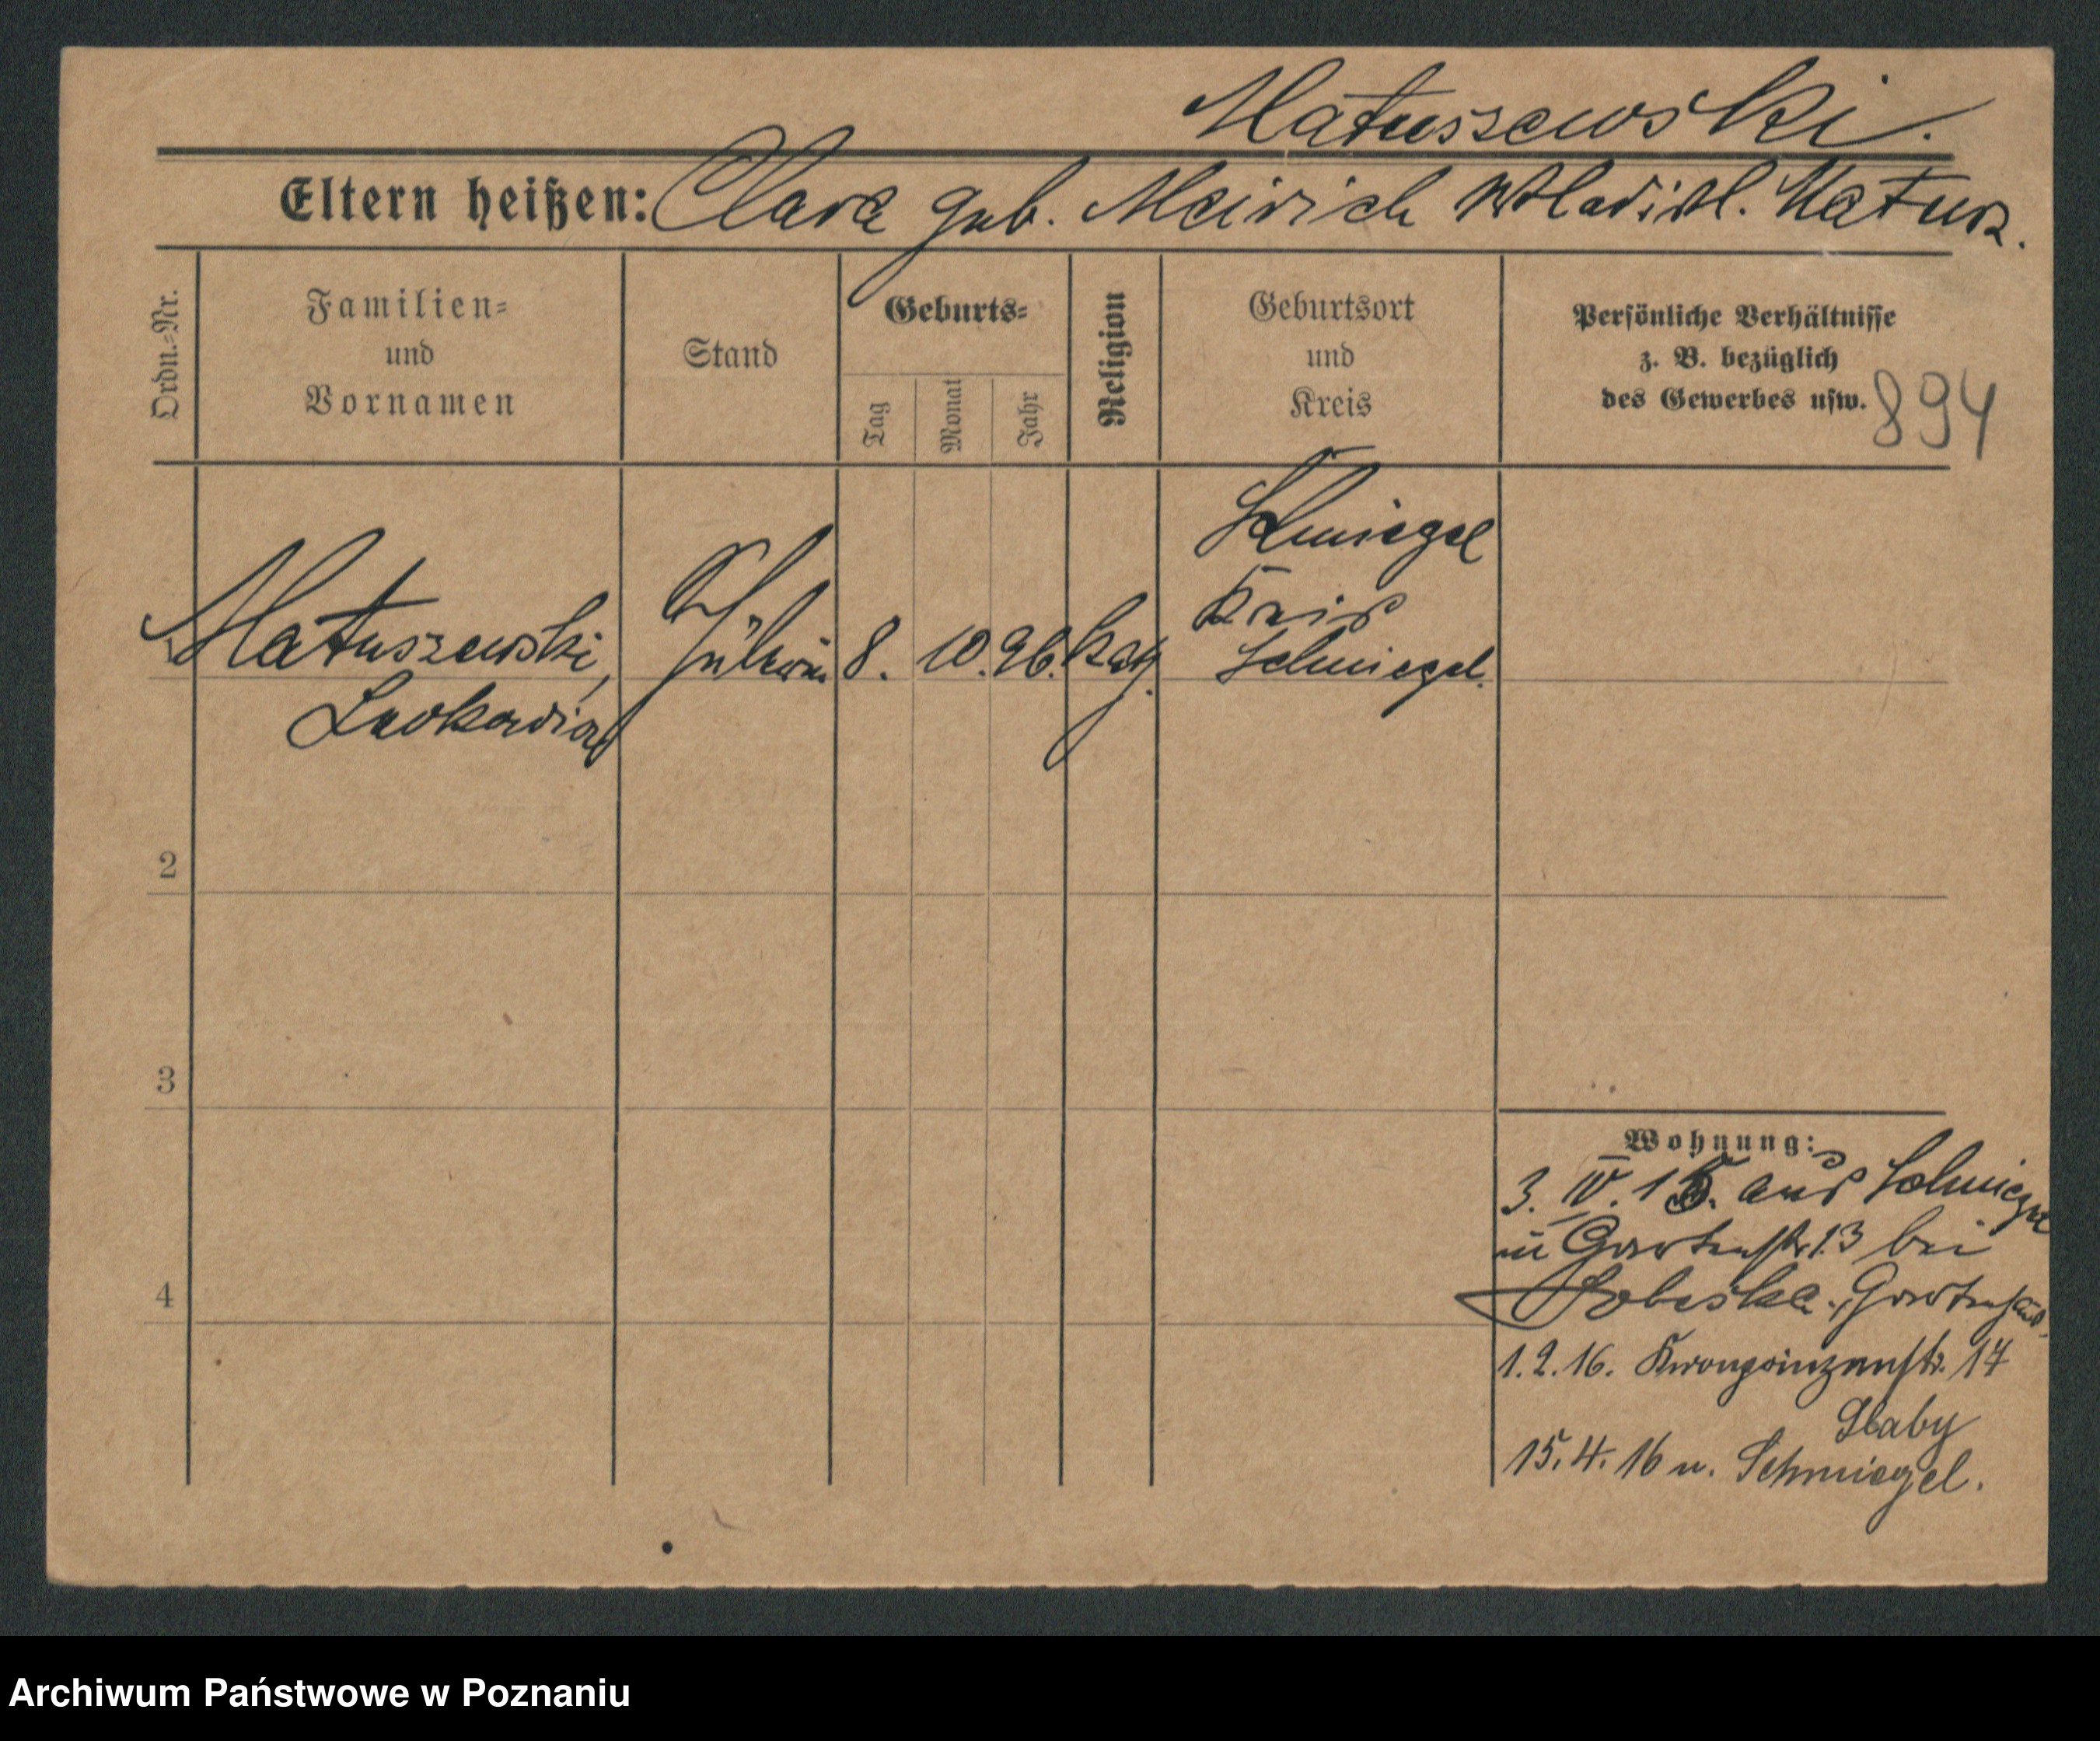 Matuszewski.
Eltern heißen: Clara geb. Meirich Wladisl. Matus.
Ordn.=Nr.
Familien=
und
Vornamen
Stand
Geburts=
Tag
Monat
Jahr
Religion
Geburtsort
und
Kreis
Persönliche Verhältnisse
z. B. bezüglich
des Gewerbes usw.
894
1
Matuszewski,
Leokadia
Schülerin
8. 10. 96. kath.
Schmiegel
Kreis
Schmiegel.
2
3
4
Wohnung:
3. IV. 15. aus Schmiegel
in Gartenstr. 13 bei
Sobeska, Gartenhaus.
1.2.16. Kronprinzenstr. 17
Slaby
15.4.16 n. Schmiegel.
Archiwum Państwowe w Poznaniu